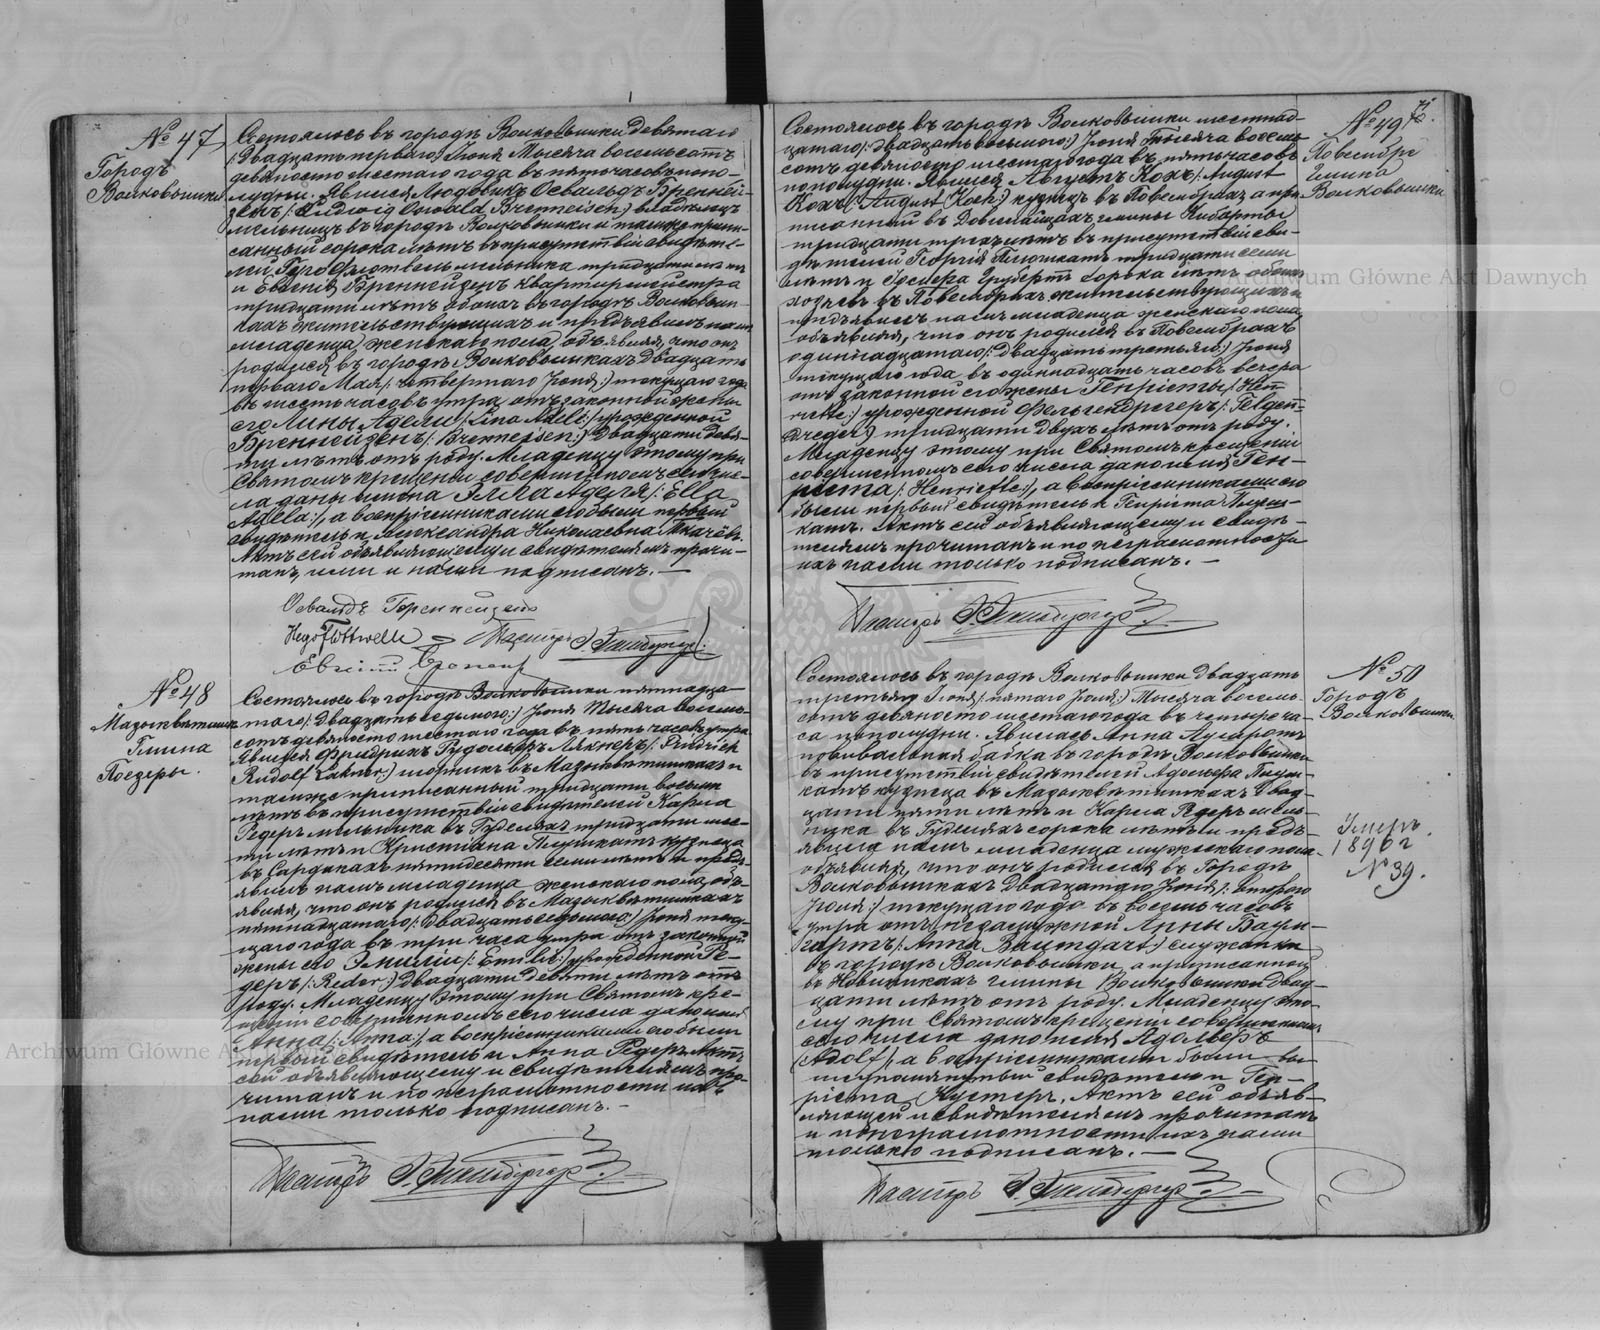 № 47
Городъ
Волковышки
Состоялось въ городѣ Волковышки девятаго
/:двадцать перваго:/ Іюня Тысяча восемьсотъ
девяносто шестаго года въ пять часовъ попо-
лудни. Явился Людовикъ Освальдъ Бренней-
зенъ /:Ludwig Oswald Brenneisen:/ владѣлецъ
мельницъ въ городѣ Волковышки и также припи-
санный сорока лѣтъ въ присутствіи свидѣте-
лей Гуго Флотвель мельника тридцати лѣтъ
и Евгенія Бреннейзенъ квартирмейстра
тридцати лѣтъ обоихъ въ городѣ Волковыш-
кахъ жительствующихъ и предъявилъ намъ
младенца женскаго пола, объявляя, что онъ
родился въ городѣ Волковышкахъ двадцать
перваго Мая /:четвертаго Іюня:/ текущаго года
въ шесть часовъ утра, отъ законной жены
его Лины Адели /:Lina Adele:/ урожденной
Бреннейзенъ /:Brenneisen:/ двадцати девя-
ти лѣтъ отъ роду. Младенцу этому при
Святомъ крещеніи совершенномъ сего чис-
ла даны имена Элла Аделя /:Ella
Adela:/, а воспріемниками его были первый
свидѣтель и Александра Николаевна Ткачёвъ.
Актъ сей объявляющему и свидѣтелямъ прочи-
танъ, ими и нами подписанъ. —
Освальдъ Бреннейзенъ
Hugo Flottwell Пасторъ
Евгеній
№ 48
Мазыквѣтишки
Гмина
Поезеры.
Состоялось въ городѣ Волковышки пятнадца-
таго /:двадцать седьмого:/ Іюня Тысяча восемь-
сотъ девяносто шестаго года въ пять часовъ утра
Явился Фридрихъ Рудольфъ Лякнеръ /:Fridrich
Rudolf Lakner:/ шорникъ въ Мазыквѣтишкахъ и
также приписанный тридцати восьми
лѣтъ въ присутствіи свидѣтелей Карла
Редеръ мельника въ Гуделяхъ тридцати шес-
ти лѣтъ и Христіана Плушкатъ кузнеца
въ Сардокахъ пятидесяти семи лѣтъ и предъ-
явилъ намъ младенца женскаго пола, объ-
являя, что онъ родился въ Мазыквѣтишкахъ
пятнадцатаго /:двадцать седьмого:/ Іюня теку-
щаго года въ три часа утра отъ законной
жены его Эмиліи /:Emilie:/ урожденной Ре-
деръ /:Reder:/ двадцати девяти лѣтъ отъ
роду. Младенцу этому при Святомъ кре-
щеніи совершенномъ сего числа дано имя
Анна /:Anna:/, а воспріемниками его были
первый свидѣтель и Анна Редеръ. Актъ
сей объявляющему и свидѣтелямъ про-
читанъ и по неграмотности ихъ
нами только подписанъ. —
Пасторъ
№ 49
Повембре
гмина
Волковышки
Состоялось въ городѣ Волковышки шестнад-
цатаго /:двадцать восьмого:/ Іюня Тысяча восемь-
сотъ девяносто шестаго года въ пять часовъ
пополудни. Явился Августъ Кохъ /:August
Koch:/ кузнецъ въ Повембрахъ а при-
писанный въ гмины Кибарты
тридцати трехъ лѣтъ въ присутствіи сви-
дѣтелей Георгія тридцати семи
лѣтъ и Груберта сорока лѣтъ обоихъ
въ Повембрахъ жительствующихъ и
предъявилъ намъ младенца женскаго пола,
объявляя, что онъ родился въ Повембрахъ
одиннадцатаго /:двадцать третьяго:/ Іюня
текущаго года въ одиннадцать часовъ вечера
отъ законной его жены Генріеты /:Hen-
riette:/ урожденной Фельгендрегеръ /:Felgen-
dreger:/ тридцати двухъ лѣтъ отъ роду.
Младенцу этому при Святомъ крещеніи
совершенномъ сего числа дано имя Ген-
ріета /:Henriette:/, а воспріемниками его
были первый свидѣтель и Генріета Плуш-
катъ. Актъ сей объявляющему и свидѣ-
телямъ прочитанъ и по неграмотности
ихъ нами только подписанъ. —
Пасторъ
№ 50
Городъ
Волковышки
Умеръ
1896 г.
№ 39.
Состоялось въ городѣ Волковышки двадцать
третьяго Іюня /:пятаго Іюля:/ Тысяча восемь-
сотъ девяносто шестаго года въ четыре ча-
са пополудни. Явилась Анна
повивальная бабка въ городѣ Волковышки
въ присутствіи свидѣтелей Адольфа Плуш-
катъ кузнеца въ Мазыквѣтишкахъ двад-
цати пяти лѣтъ и Карла Редеръ мель-
ника въ Гуделяхъ сорока лѣтъ и предъ-
явила намъ младенца мужскаго пола,
объявляя, что онъ родился въ Городѣ
Волковышкахъ двадцатаго Іюня /:втораго
Іюля:/ текущаго года въ восемь часовъ
утра отъ незамужной Анны Баум-
гартъ /:Anna Baumgart:/ служанки
въ городѣ Волковышки, а приписанной
въ Новишкахъ гмины Волковышки двад-
цати лѣтъ отъ роду. Младенцу это-
му при Святомъ крещеніи совершенномъ
сего числа дано имя Адольфъ
(Adolf), а воспріемниками были вы-
шеупомянутый свидѣтель и Ген-
ріета Кустеръ. Актъ сей объяв-
ляющей и свидѣтелямъ прочитанъ
и по неграмотности ихъ нами
только подписанъ. —
Пасторъ
Archiwum Główne Akt Dawnych
Archiwum Główne Akt